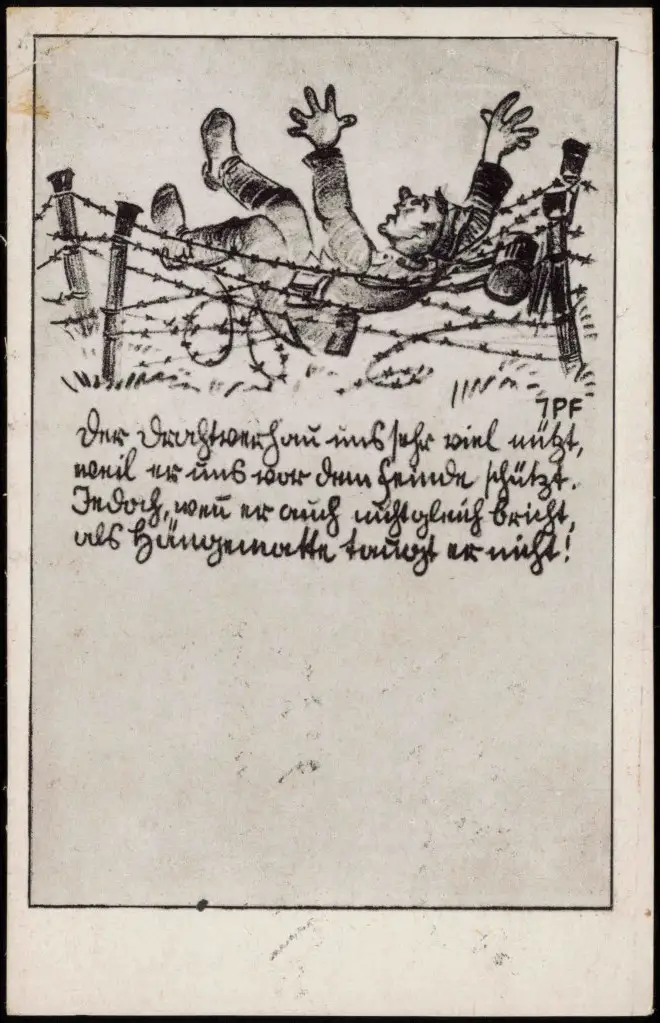 JPF
Der Drahtverhau uns sehr viel nützt,
weil er uns vor dem Feinde schützt.
Jedoch, wen̄ er auch nicht gleich bricht,
als Hängematte taugt er nicht!